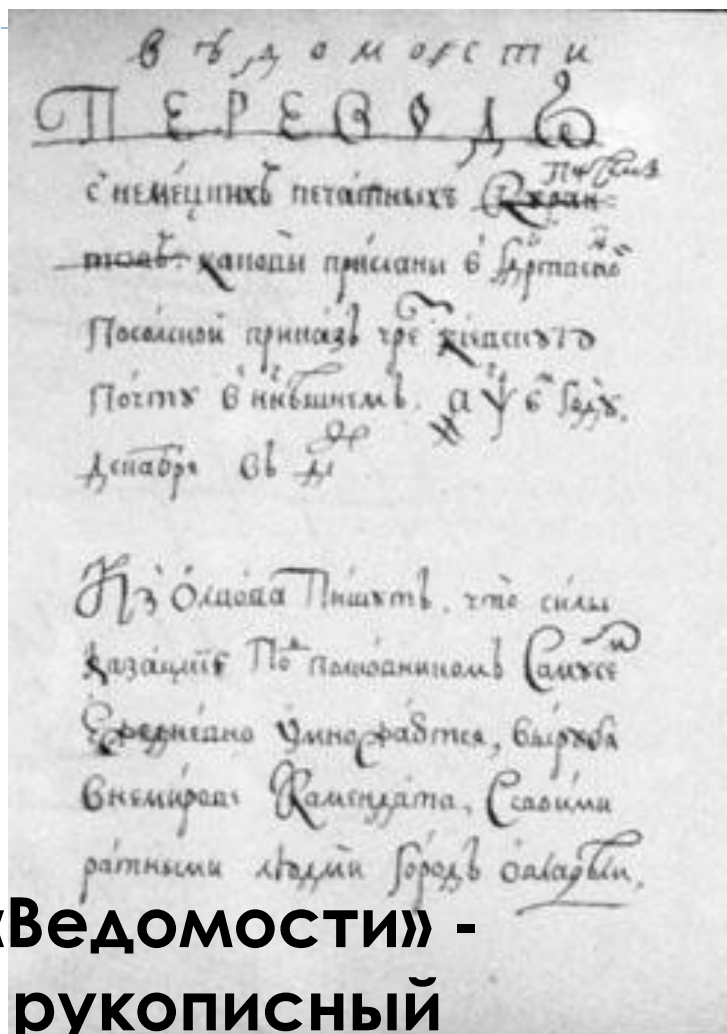 вѣдомости
ПЕРЕВОДЪ
с немецкихъ печатныхъ
присланы в
Посолской приказъ чре
Почту в нн҃ѣшнемъ. году.
декабря въ д
Из Олкова Пишутъ, что силы
казацкие По полковникомъ Самусе
Ежедневно умножаются, вырубя
внемирове Каменданта, Ссвоими
ратными людми городъ овладѣли,
«Ведомости» -
рукописный